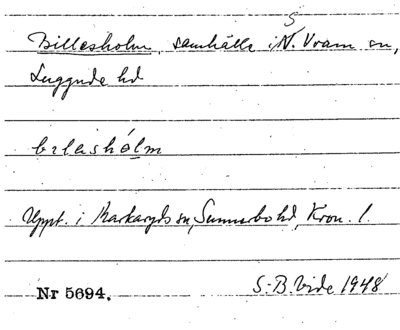 Billesholm, samhälle i S N. Vram sn,
Luggude hd
bɛlashólm
Uppt. i Markaryds sn, Sunnerbo hd, Kron. l.
Nr 5694. S.-B. Vide 1948